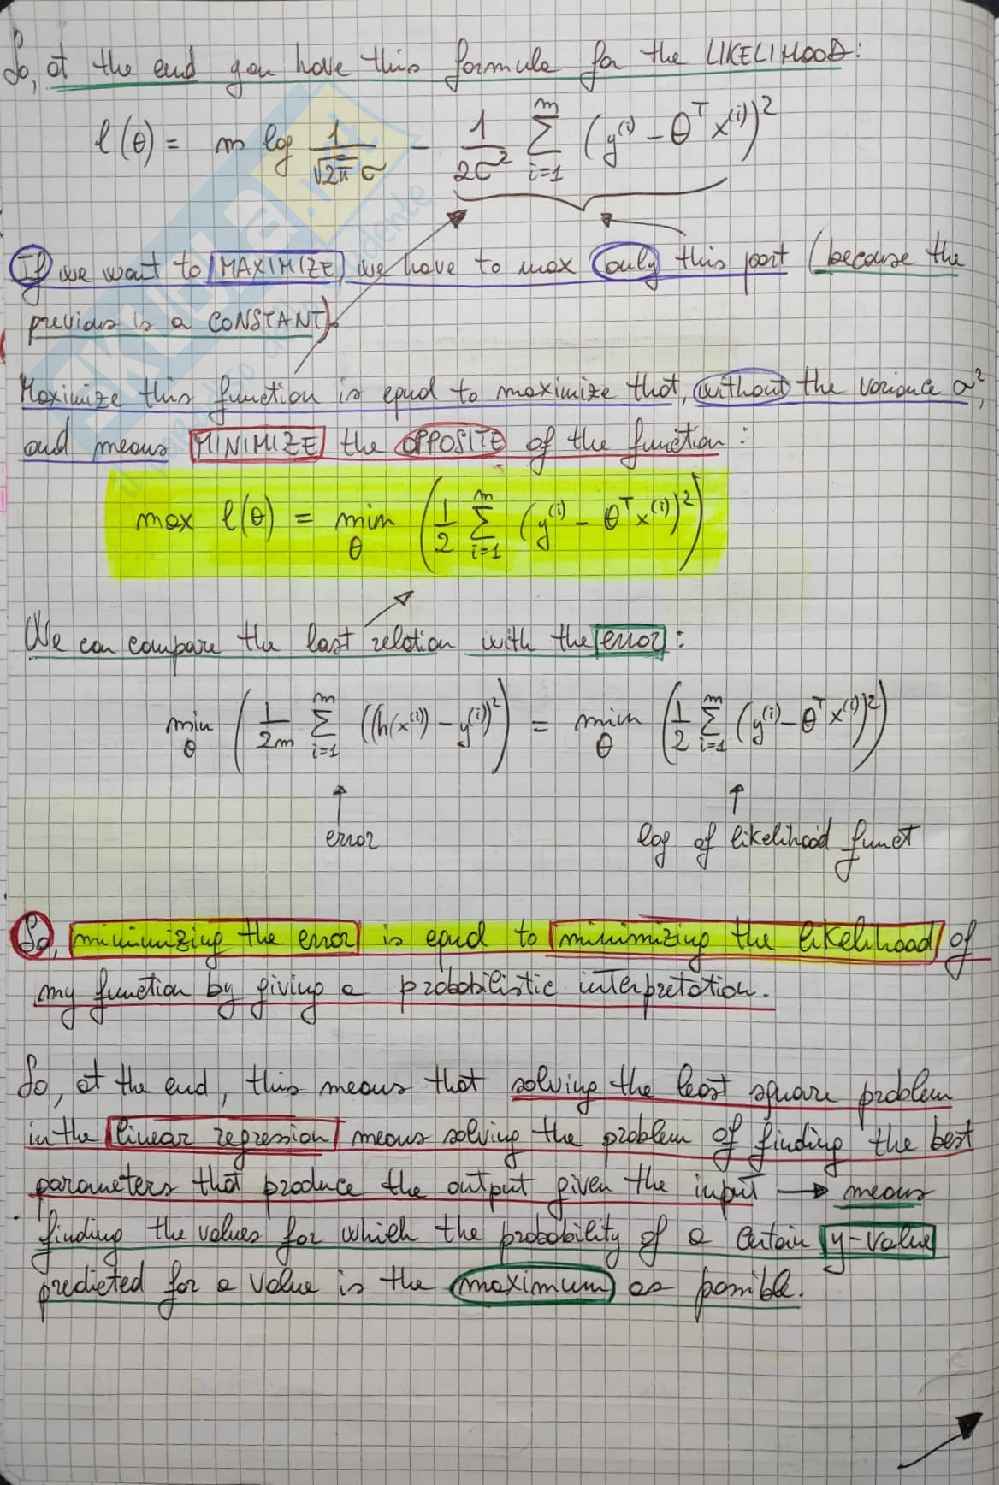 So, at the end you have this formula for the LIKELIHOOD:
l(θ) = m log 1/(√2π σ) - 1/(2σ²) Σ_{i=1}^{m} (y^(i) - θ^T x^(i))²
If we want to MAXIMIZE, we have to max only this part (because the
previous is a CONSTANT).
Maximize this function is equal to maximize that, without the variance σ²,
and means MINIMIZE the OPPOSITE of the function:
max l(θ) = min_θ (1/2 Σ_{i=1}^{m} (y^(i) - θ^T x^(i))²)
We can compare the last relation with the error:
min_θ (1/2m Σ_{i=1}^{m} ((h(x^(i)) - y^(i))²) = min_θ (1/2 Σ_{i=1}^{m} (y^(i) - θ^T x^(i))²)
error log of likelihood funct
So, minimizing the error is equal to minimizing the likelihood of
my function by giving a probabilistic interpretation.
So, at the end, this means that solving the least square problem
in the linear regression means solving the problem of finding the best
parameters that produce the output given the input → means
finding the values for which the probability of a certain y-value
predicted for a value is the maximum as possible.